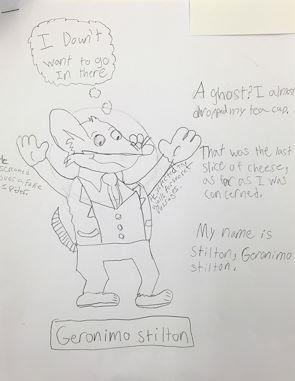 I Dawn't
want to go
In there
A ghost? I almost
dropped my tea cup.
He
screamed
over a fake
spider.
That was the last
slice of cheese,
as far as I was
concerned.
My name is
Stilton, Geronimo
stilton.
Geronimo stilton